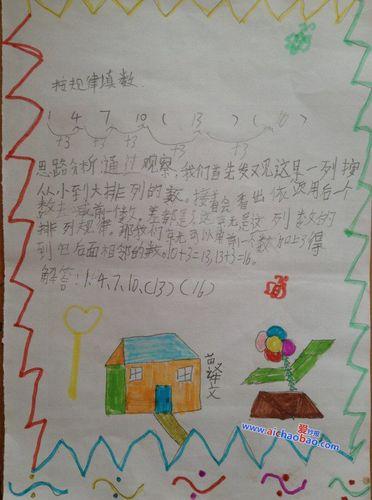 按规律填数
1 4 7 10 ( 13 ) ( 16 )
+3 +3 +3 +3 +3
思路分析:通过观察,我们首先发现这是一列按
从小到大排列的数。接着会看出依次用后一个
数去减前一个数,差都是3,这就是这列数的
排列规律。那我们就可以用前一个数加上3得
到它后面相邻的数。10+3=13,13+3=16。
解答:1、4、7、10、(13)(16)
文
爱抄报
www.aichaobao.com